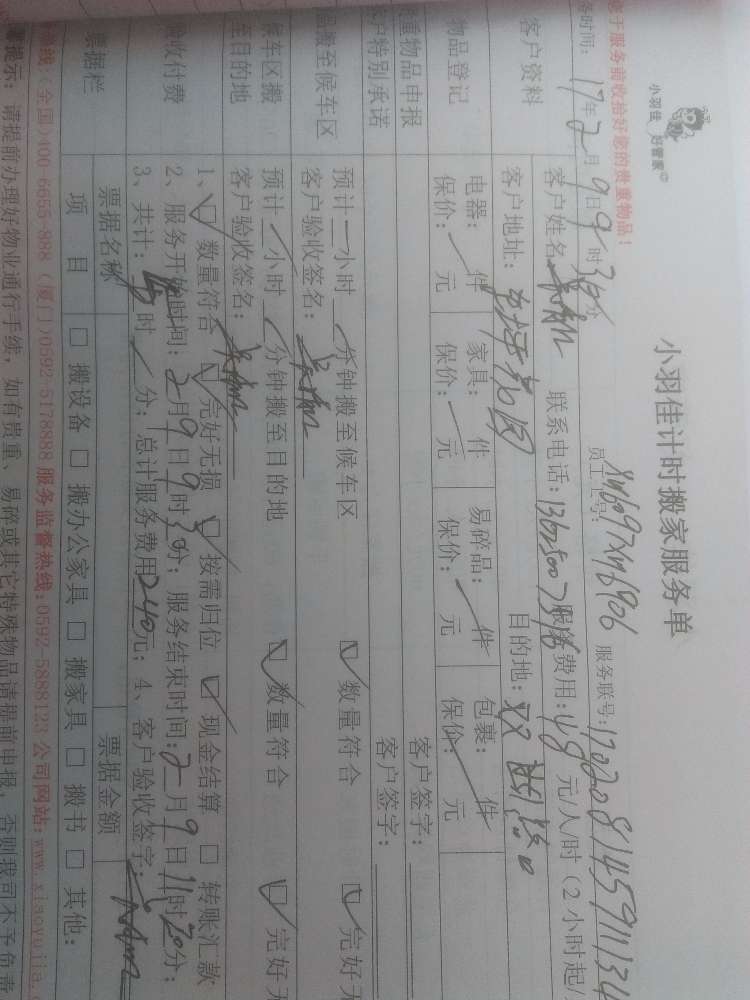 小羽佳 好管家
小羽佳计时搬家服务单
您于服务前收拾好您的贵重物品!
员工工号: XM6097XM6906 服务联号:
务时间: 17年2月9日9时30分
客户资料
客户姓名: 联系电话: 服务费用: 48 元/人/时(2小时起/
客户地址: 目的地:
物品登记
电器: 件 家具: 件 易碎品: 件 包裹: 件
保价: 元 保价: 元 保价: 元 保价: 元
贵重物品申报 客户签字:
客户特别承诺 客户签字:
品搬至候车区
预计 小时 分钟搬至候车区 数量符合 完好无
客户验收签名:
候车区搬至目的地
预计 小时 分钟搬至目的地 数量符合 完好无
客户验收签名:
验收付费
1、 数量符合 完好无损 按需归位 现金结算 转账汇款
2、服务开始时间: 2月9日9时30分; 服务结束时间: 2月9日11时30分;
3、共计: 时 分; 总计服务费用240元; 4、客户验收签字:
票据栏
票据名称 票据金额
项目 搬设备 搬办公家具 搬家具 搬书 其他:
热线(全国)400-6655-888 (厦门)0592-5178888 服务监督热线: 0592-5888123 公司网站: www.xiaoyujia.
提示: 请提前办理好物业通行手续, 如有贵重、易碎或其它特殊物品请提前申报, 否则我司不予负责